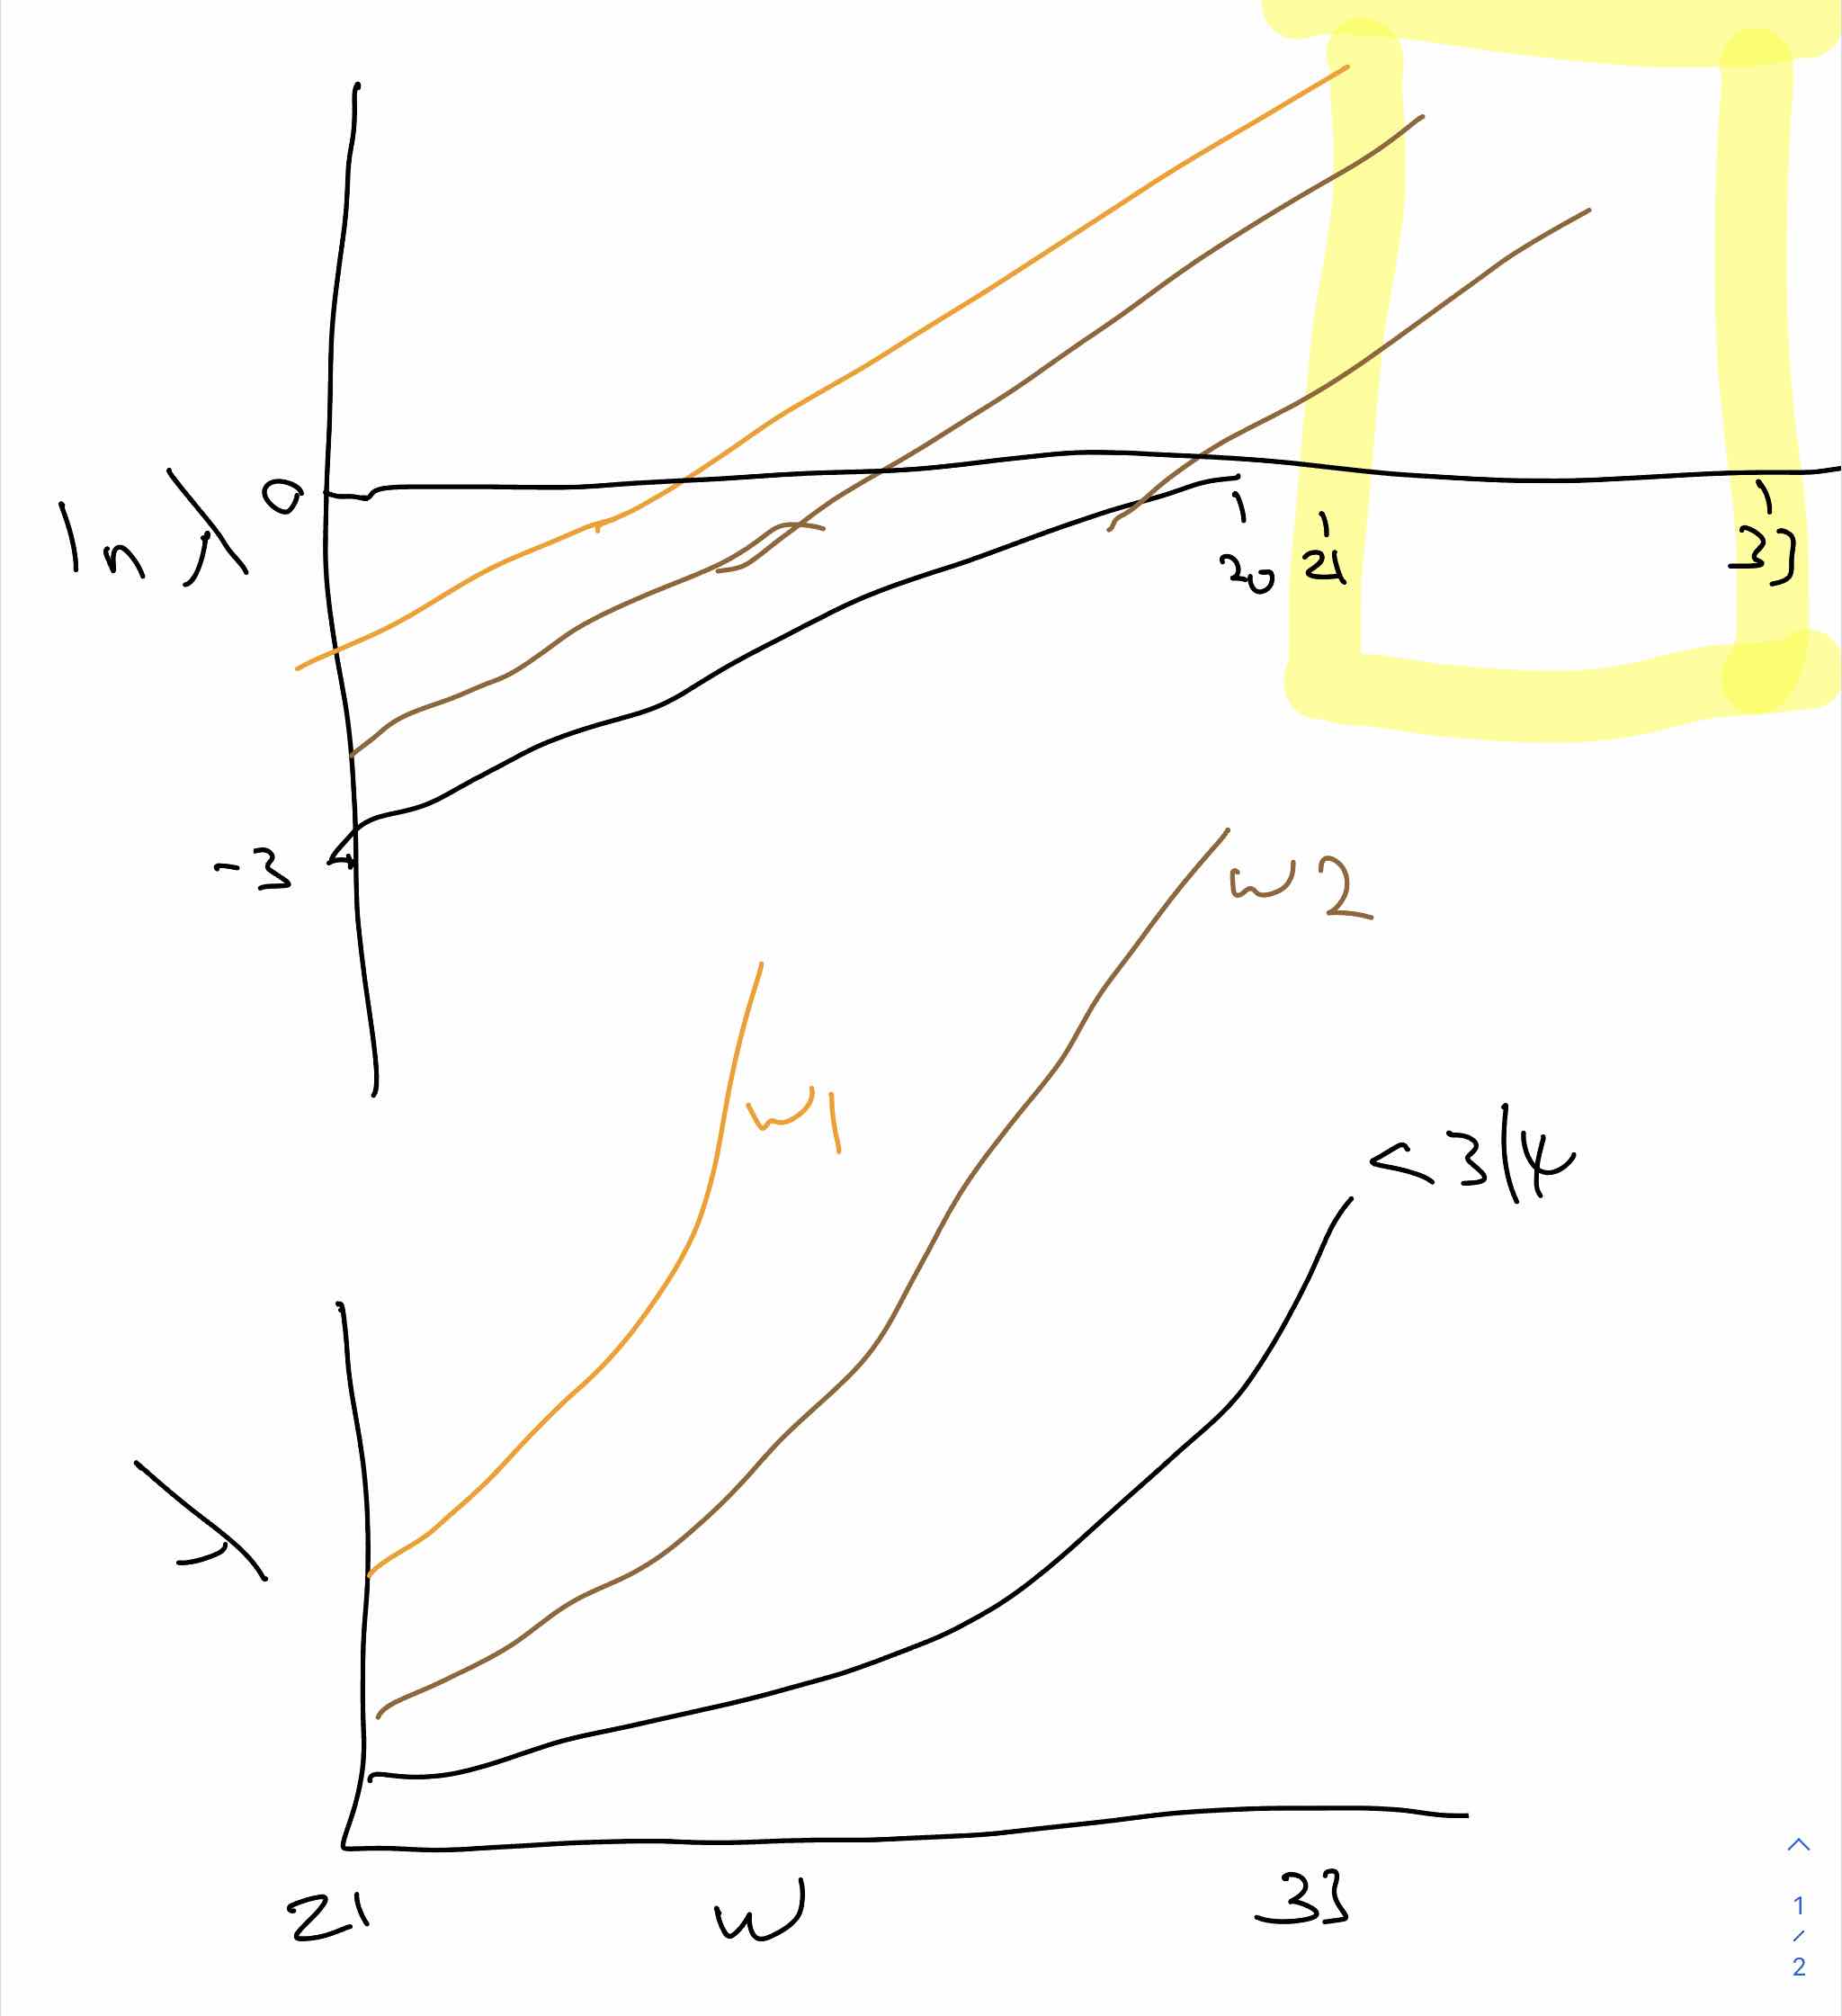 ln λ
0
20
21
33
-3
w2
w1
<3/4
λ
21
w
33
1
/
2